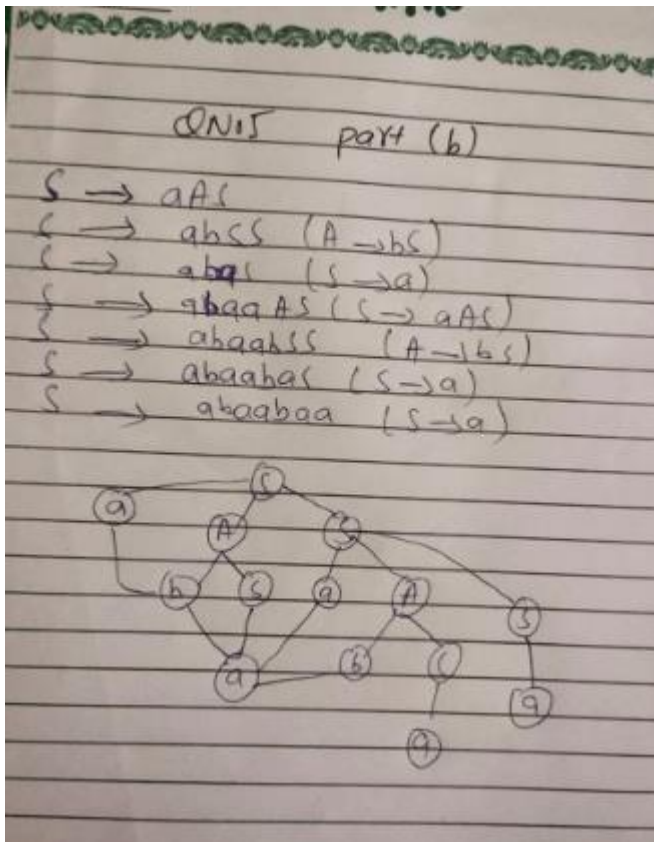 QN15 part (b)
S → aAS
S → abSS (A → bS)
S → abaS (S → a)
S → abaaAS (S → aAS)
S → abaabSS (A → bS)
S → abaabaS (S → a)
S → abaabaa (S → a)
S
a
A S
b S a A S
a b S a
a